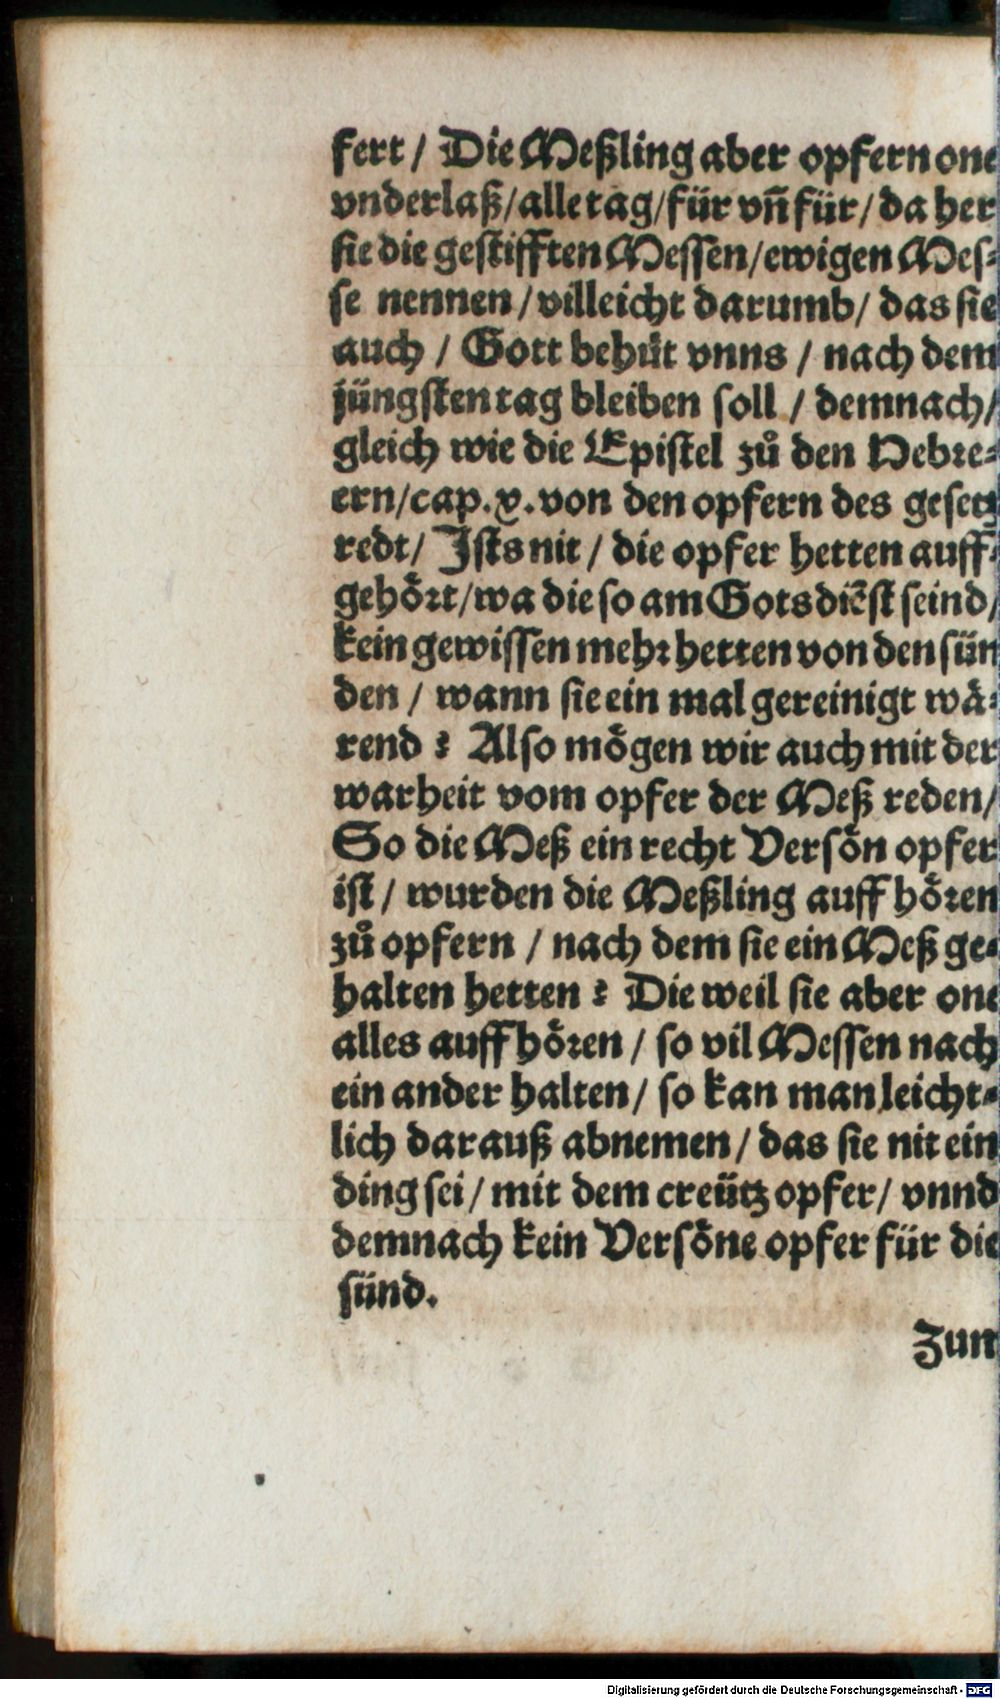 fert / Die Meßling aber opfern one
vnderlaß/alle tag/für vn̄ für/da her
sie die gestifften Messen/ewigen Mes⸗
se nennen/villeicht darumb/das sie
auch / Gott behüt vnns / nach dem
jüngsten tag bleiben soll / demnach/
gleich wie die Epistel zů den Hebre⸗
ern/cap.x.von den opfern des gesetz
redt/ Ists nit / die opfer hetten auff⸗
gehoͤrt/wa die so am Gots diēst seind/
kein gewissen mehr hetten von den sün
den / wann sie ein mal gereinigt waͤ⸗
rend ? Also moͤgen wir auch mit der
warheit vom opfer der Meß reden/
So die Meß ein recht Versoͤn opfer
ist / wurden die Meßling auff hoͤren
zů opfern / nach dem sie ein Meß ge⸗
halten hetten ? Die weil sie aber one
alles auff hoͤren / so vil Messen nach
ein ander halten/ so kan man leicht⸗
lich darauß abnemen/ das sie nit ein
ding sei/ mit dem creütz opfer/ vnnd
demnach kein Versoͤne opfer für die
sünd.
Zum
Digitalisierung gefördert durch die Deutsche Forschungsgemeinschaft - DFG